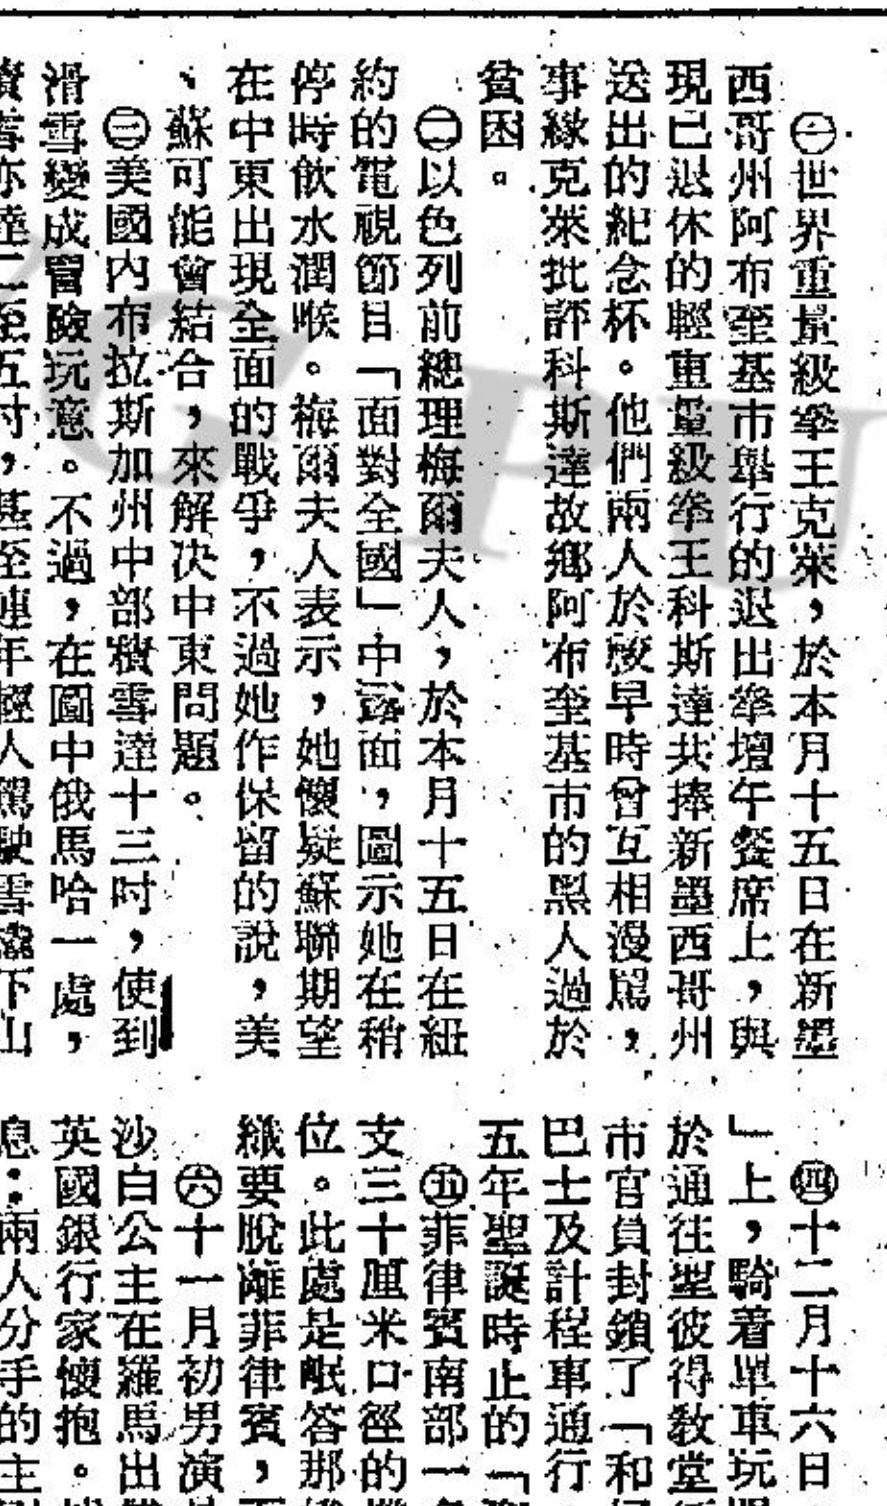 ㊀世界重量級拳王克萊，於本月十五日在新墨
西哥州阿布奎基市舉行的退出拳壇午餐席上，與
現已退休的輕重量級拳王科斯達共捧新墨西哥州
送出的紀念杯。他們兩人於較早時曾互相漫駡，
事緣克萊批評科斯達故鄉阿布奎基市的黑人過於
貧困。
㊁以色列前總理梅爾夫人，於本月十五日在紐
約的電視節目「面對全國」中露面，圖示她在稍
停時飲水潤喉。梅爾夫人表示，她懷疑蘇聯期望
在中東出現全面的戰爭，不過她作保留的說，美
、蘇可能會結合，來解決中東問題。
㊂美國內布拉斯加州中部積雪達十三吋，使到
滑雪變成冒險玩意。不過，在圖中俄馬哈一處，
積雪亦達二至五吋，甚至連年輕人駕駛雪橇下山
㊃十二月十六日
」上，騎着單車玩
於通往聖彼得教堂
市官員封鎖了「和
巴士及計程車通行
五年聖誕時止的「
㊄菲律賓南部一
支三十厘米口徑的
位。此處是岷答那
織要脫離菲律賓，
㊅十一月初男演
沙白公主在羅馬出
英國銀行家懷抱。
息：兩人分手的主